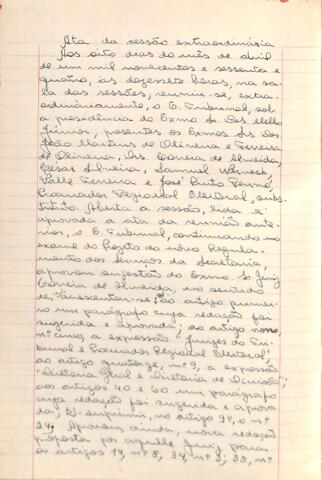 Ata da sessão extraordinária
Aos oito dias do mês de abril
de um mil novecentos e sessenta e
quatro, às dezessete horas, na sa-
la das sessões, reuniu-se, extra-
ordinariamente, o E. Tribunal, sob
a presidência do Exmo Sr. Des. Mello
Júnior, presentes os Exmos Srs. Des.
João Martins de Oliveira e Ferreira
de Oliveira, Drs. Correia de Almeida,
Cezar Silveira, Samuel Werneck,
Valle Ferreira e José Pinto Renó,
Procurador Regional Eleitoral, subs-
tituto. Aberta a sessão, lida e
aprovada a ata da reunião ante-
rior, o E. Tribunal, continuando no
exame do Projeto do novo Regula-
mento dos Serviços da Secretaria,
aprovou sugestão do Exmo. Sr. Juiz
Correia de Almeida, no sentido
de acrescentar-se: ao artigo primei-
ro um parágrafo cuja redação foi
sugerida e aprovada; ao artigo nono,
nº cinco, a expressão "Juízes do Tri-
bunal e Procurador Regional Eleitoral";
ao artigo quatorze, nº 9, a expressão
"Diretoria Geral e Diretoria de Divisão";
aos artigos 40 e 60 um parágrafo
cuja redação foi sugerida e aprova-
da; b) suprimir, no artigo 9º, o nº
24. Aprovou, ainda, nova redação
proposta por aquele Juiz para
os artigos 14, nº 8; 34, nº 3; 39, nº